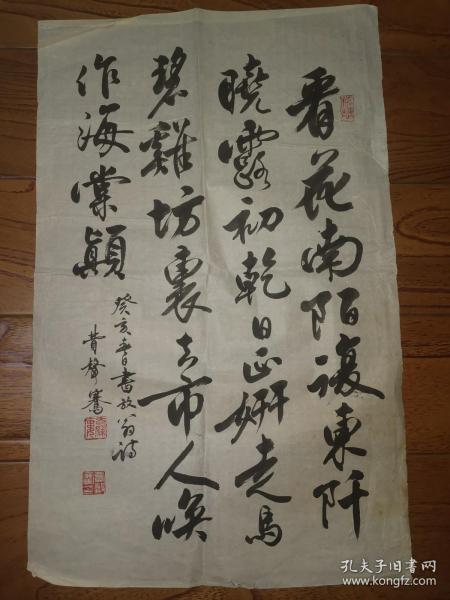 看花南陌復東阡
曉露初乾日正妍走馬
碧雞坊裏去市人喚
作海棠顛
癸亥春日書放翁詩
費聲騫
孔夫子旧书网
www.kongfz.com